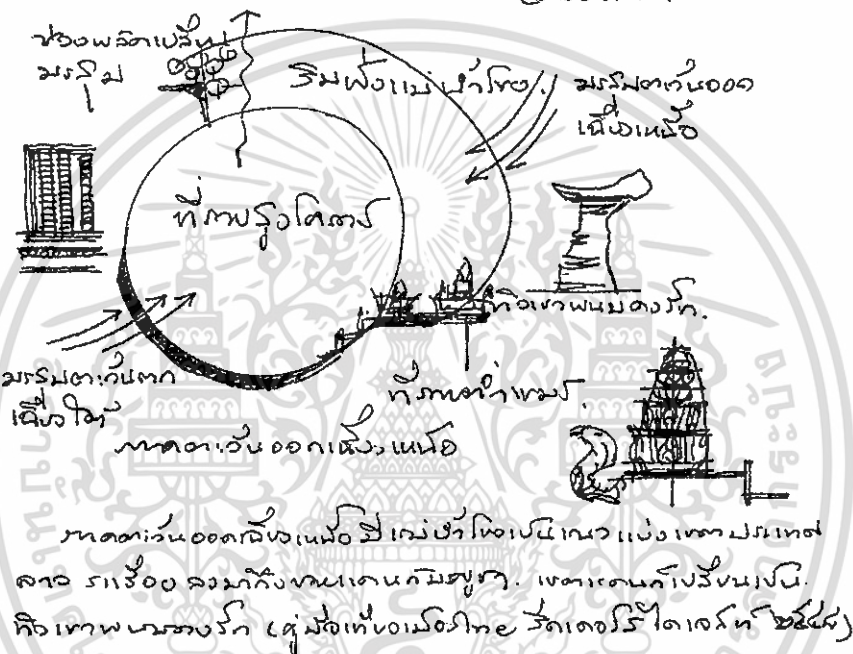 ช่วงผลัดเปลี่ยน
มรสุม
ริมฝั่งแม่น้ำโขง.
มรสุมตะวันออก
เฉียงเหนือ
ที่ราบสูงโคราช
ทิวเขาพนมดงรัก.
มรสุมตะวันตก
เฉียงใต้
ที่ราบต่ำเขมร.
ภาคตะวันออกเฉียงเหนือ
ภาคตะวันออกเฉียงเหนือมีแม่น้ำโขงเป็นแนวแบ่งเขตประเทศ
ลาว ระเรื่อยลงมาถึงชายแดนกัมพูชา. เขตแดนก็เปลี่ยนเป็น.
ทิวเขาพนมดงรัก (คู่มือเที่ยวเมืองไทย รีดเดอร์ส ไดเจสท์